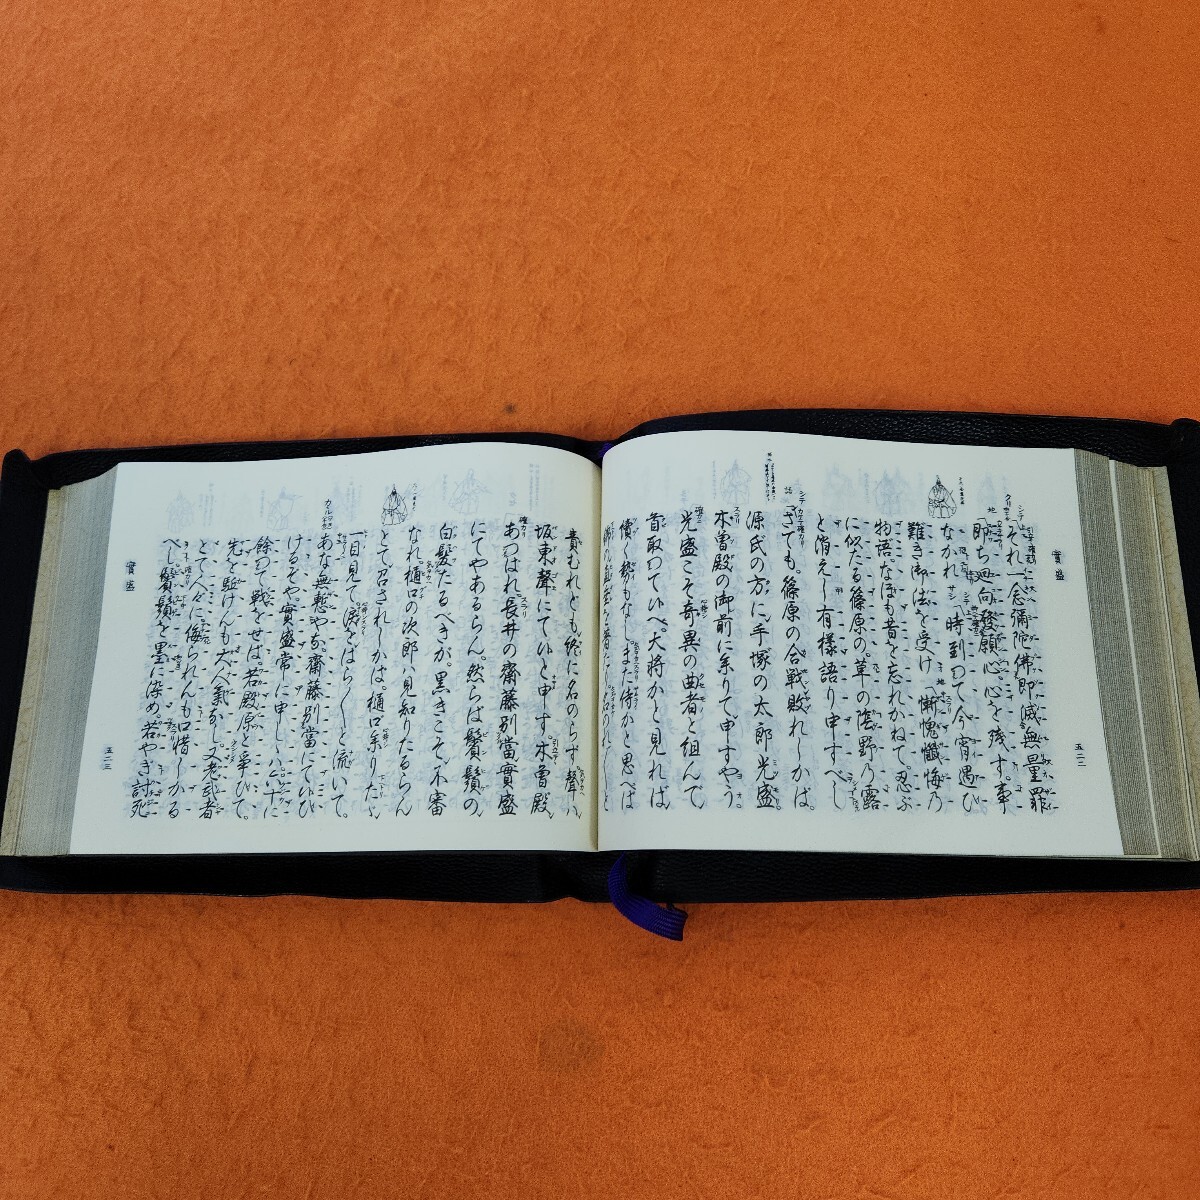 實盛
五二二
それ一念彌陀佛即滅無量罪
即ち廻向發願心。心を残す。事
なかれ
時到つて今宵遇ひ
難き御法を受け
慚愧懺悔の
物語。なほも昔を忘れかねて。忍ぶ
に似たる篠原の。草の蔭野乃露
と消えし有様語り申すべし
シテ
語
さても。篠原の合戦敗れしかば。
源氏の方に。手塚の太郎光盛。
木曽殿の御前に参りて申すやう
光盛こそ奇異の曲者と組んで。
首取つてい�へ。大将かと見れば。
續く勢もなし。また侍かと思へば
責むれども終に名のらず。聲ハ
坂東聲にていと申す。木曽殿。
あつぱれ長井の齋藤別當實盛
にてやあるらん。然らば鬢鬚の
白髪たるべきが。黒きこそ不審
なれ。樋口の次郎ハ見知りたるらん
とて召されしかば。樋口参りたゞ
一目見て。涙をはら〳〵と流いて。
あな無慙やな。齋藤別當にていひ
けるぞや。實盛常に申しゝハ。六十に
餘つて戦をせば。若殿原と争ひて。
先を駈けんも大人氣なし。又老武者
とて人々に。侮られんも口惜しかる
べし。鬢鬚を墨に染め。若やぎ討死
實盛
五二三